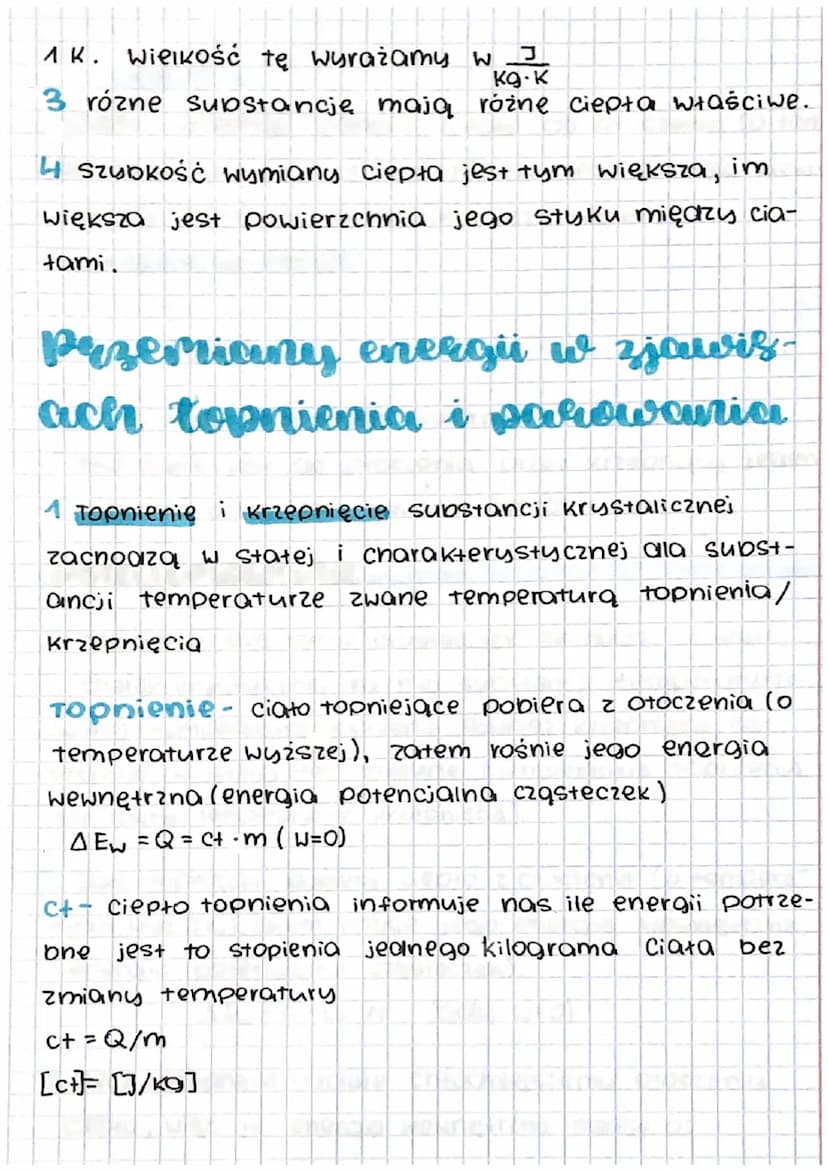 1 K. Wielkość tę wyrażamy w J/kg·K
3 różne substancje mają różne ciepła właściwe.
4 Szybkość wymiany ciepła jest tym większa, im
większa jest powierzchnia jego styku między cia-
łami.
Przemiany energii w zjawis-
ach topnienia i parowania
1 Topnienie i krzepnięcie substancji krystalicznej
zachodzą w stałej i charakterystycznej dla subst-
ancji temperaturze zwane temperaturą topnienia/
krzepnięcia
Topnienie - ciało topniejące pobiera z otoczenia (o
temperaturze wyższej), zatem rośnie jego energia
wewnętrzna (energia potencjalna cząsteczek)
ΔEw = Q = ct · m ( W=0)
ct - ciepło topnienia informuje nas ile energii potrze-
bne jest to stopienia jednego kilograma ciała bez
zmiany temperatury
ct = Q/m
[ct]= [J/kg]